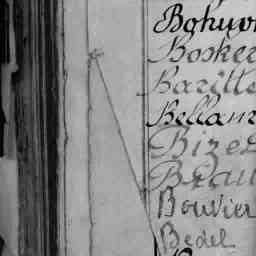 Bohuon
Bosker
Baritte
Bellam
Bizet
Beau
Bouvier
Bedel